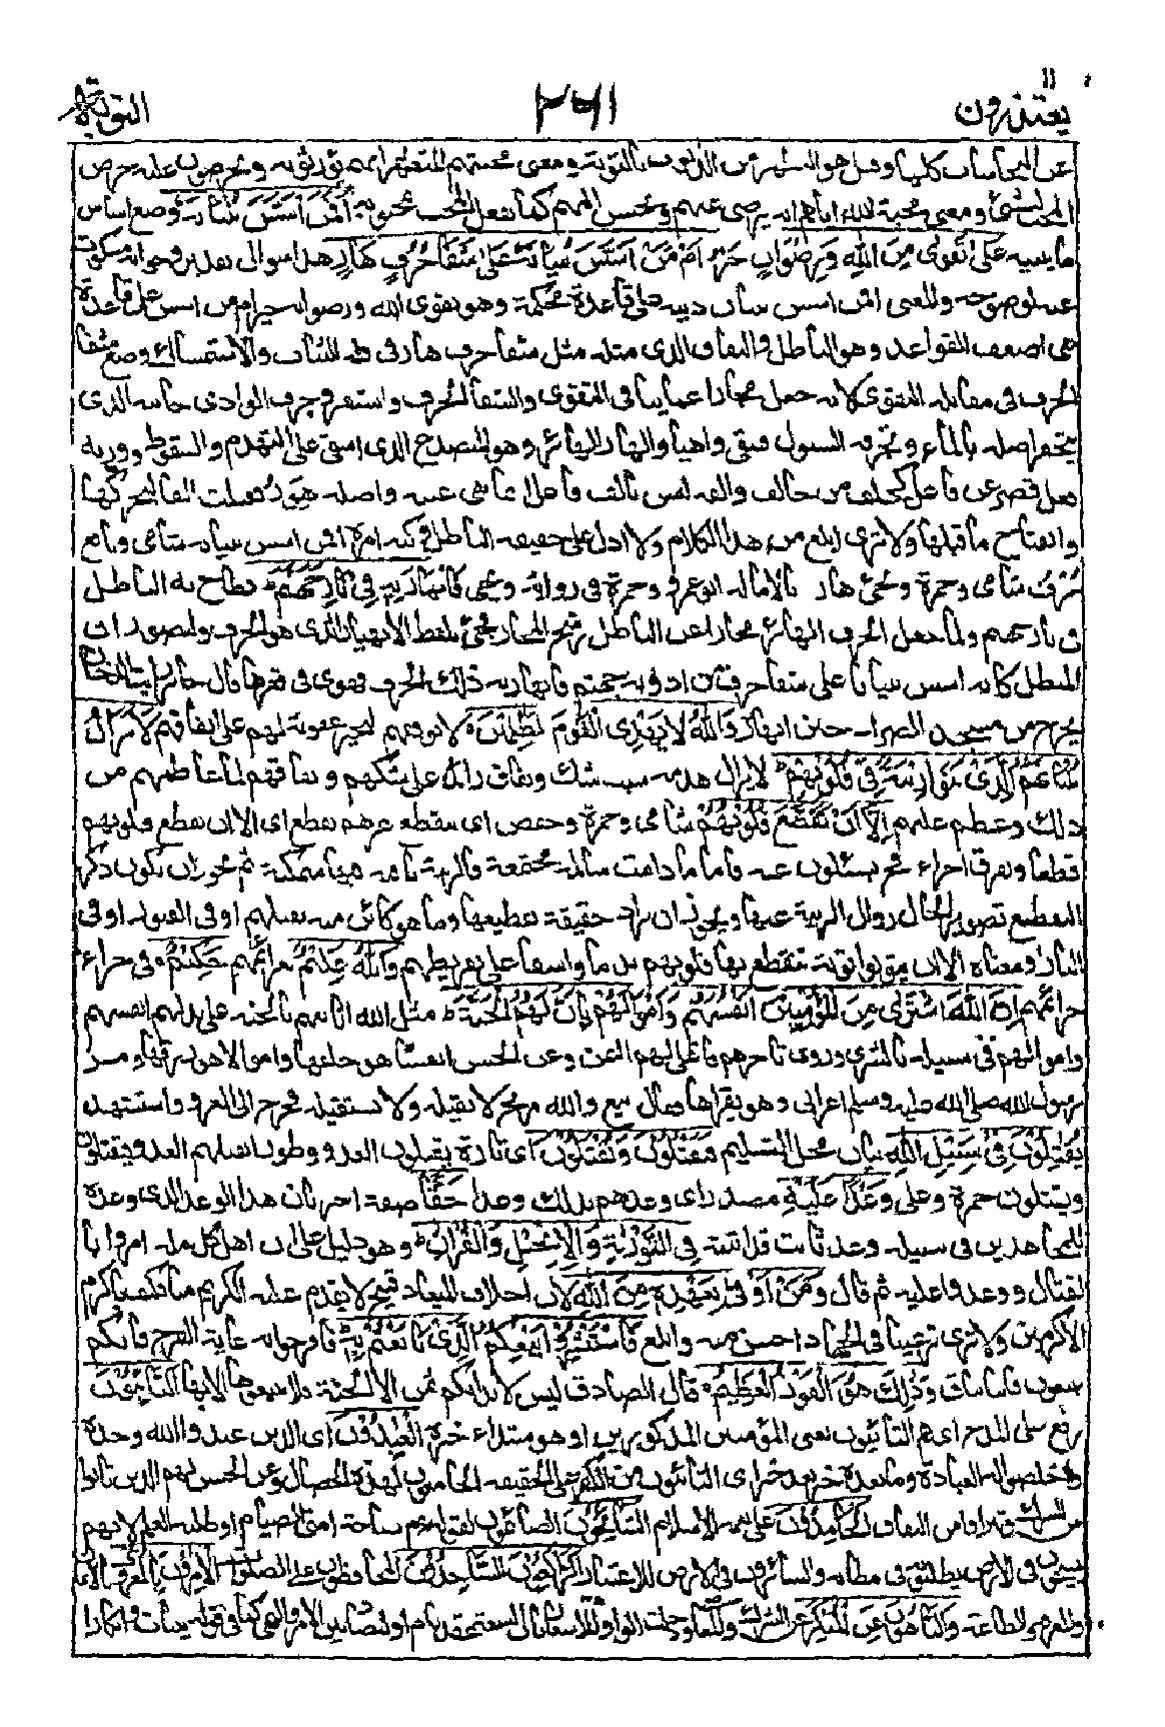 يعتذرون ١١ ٣٦١ التوبة ٩
عن النجاسات كلها وقيل هو التطهر من الذنوب بالتوبة ومعنى محبتهم للتطهر انهم يؤثرونه ويحرصون عليه حرص
المحب للشئ ومعنى محبة الله اياهم انه يرضى عنهم ويحسن اليهم كما يفعل المحب بمحبوبه أَفَمَنْ أَسَّسَ بُنْيَانَهُ وضع اساس
ما يبنيه عَلَى تَقْوَى مِنَ اللَّهِ وَرِضْوَانٍ خَيْرٌ أَمْ مَنْ أَسَّسَ بُنْيَانَهُ عَلَى شَفَا جُرُفٍ هَارٍ هذا سوال تقرير وجوابه مسكوت
عنه لوضوحه والمعنى افمن اسس بنيان دينه على قاعدة محكمة وهو تقوى الله ورضوانه خير ام من اسس على قاعدة
هى اضعف القواعد وهو الباطل والنفاق الذى مثله مثل شفا جرف هار فى قلة الثبات والاستمساك وضع شفا
الجرف فى مقابلة التقوى لانه جعل مجازا عما ينافى التقوى والشفا الحرف والشفير وجرف الوادى جانبه الذى
يتحفر اصله بالماء وتجرفه السيول فيبقى واهيا والهار الهائر وهو المتصدع الذى اشفى على التهدم والسقوط ووزنه
فعل قصر عن فاعل كخلف من خالف والفه ليس بالف فاعل انما هى عينه واصله هور فقلبت الفا لتحركها
وانفتاح ما قبلها ولا ترى ابلغ من هذا الكلام ولا ادل على حقيقة الباطل وكنه امره افمن اسس بنيانه شامى ونافع
جُرْف شامى وحمزة ويحيى هار بالامالة ابو عمرو وحمزة فى رواية ويحيى فَانْهَارَ بِهِ فِي نَارِ جَهَنَّمَ فطاح به الباطل
فى نار جهنم ولما جعل الجرف الهائر مجازا عن الباطل رشح المجاز فجئ بلفظ الانهيار الذى هو للجرف وليتصور ان
المبطل كانه اسس بنيانا على شفا جرف من اودية جهنم فانهار به ذلك الجرف فهوى فى قعرها قال جابر رايت الدخان
يخرج من مسجد الضرار حين انهار وَاللَّهُ لَا يَهْدِي الْقَوْمَ الظَّالِمِينَ لا يوفقهم للخير عقوبة لهم على نفاقهم لَا يَزَالُ
بُنْيَانُهُمُ الَّذِي بَنَوْا رِيبَةً فِي قُلُوبِهِمْ لا يزال هدمه سبب شك ونفاق زائد على شكهم ونفاقهم لما غاظهم من
ذلك وعظم عليهم إِلَّا أَنْ تَقَطَّعَ قُلُوبُهُمْ شامى وحمزة وحفص اى تتقطع غيرهم تقطع اى الا ان تقطع قلوبهم
قطعا وتفرق اجزاء فح يسئلون عنه واما ما دامت سالمة مجتمعة فالريبة باقية فيها متمكنة ثم يجوز ان يكون ذكر
التقطيع تصويرا لحال زوال الريبة عنها ويجوز ان يراد حقيقة تقطيعها وما هو كائن منه بقتلهم او فى القبور او فى
النار او معناه الا ان يتوبوا توبة تتقطع بها قلوبهم ندما واسفا على تفريطهم وَاللَّهُ عَلِيمٌ بعزائمهم حَكِيمٌ فى جزاء
جرائمهم إِنَّ اللَّهَ اشْتَرَى مِنَ الْمُؤْمِنِينَ أَنْفُسَهُمْ وَأَمْوَالَهُمْ بِأَنَّ لَهُمُ الْجَنَّةَ مثل الله اثابتهم بالجنة على بذلهم انفسهم
واموالهم فى سبيله بالشرى وروى تاجرهم فاغلى لهم الثمن وعن الحسن انفسا هو خلقها واموالا هو رزقها ومر
برسول الله صلى الله عليه وسلم اعرابى وهو يقرأها فقال بيع والله مربح لا نقيله ولا نستقيله فخرج الى الغزو واستشهد
يُقَاتِلُونَ فِي سَبِيلِ اللَّهِ بيان محل التسليم فَيَقْتُلُونَ وَيُقْتَلُونَ اى تارة يقتلون العدو وطورا يقتلهم العدو فيقتلون
ويقتلون حمزة وعلى وَعْدًا عَلَيْهِ مصدر اى وعدهم بذلك وعدا حَقًّا صفته اخبر بان هذا الوعد الذى وعده
للمجاهدين فى سبيله وعد ثابت قد اثبته فِي التَّوْرَاةِ وَالْإِنْجِيلِ وَالْقُرْآنِ وهو دليل على ان اهل كل ملة امروا با
لقتال ووعدوا عليه ثم قال وَمَنْ أَوْفَى بِعَهْدِهِ مِنَ اللَّهِ لان اخلاف الميعاد قبيح لا يقدم عليه الكريم منا فكيف باكرم
الاكرمين ولا ترى ترغيبا فى الجهاد احسن منه وابلغ فَاسْتَبْشِرُوا بِبَيْعِكُمُ الَّذِي بَايَعْتُمْ بِهِ فافرحوا به غاية الفرح فانكم
تبيعون فانيا بباق وَذَلِكَ هُوَ الْفَوْزُ الْعَظِيمُ قال الصادق ليس لابدانكم ثمن الا الجنة فلا تبيعوها الا بها التَّائِبُونَ
رفع على المدح اى هم التائبون يعنى المؤمنين المذكورين او هو مبتداء خبره الْعَابِدُونَ اى الذين عبدوا الله وحده
واخلصوا له العبادة وما بعده خبر بعد خبر اى التائبون من الكفر على الحقيقة الجامعون لهذه الخصال وعن الحسن هم الذين تابوا
من الشرك وتبرءوا من النفاق الْحَامِدُونَ على نعمة الاسلام السَّائِحُونَ الصائمون لقوله عم سياحة امتى الصيام او طلبة العلم لانهم
يسيحون فى الارض يطلبونه فى مظانه والسائرون فى الارض للاعتبار الرَّاكِعُونَ السَّاجِدُونَ المحافظون على الصلوات الْآمِرُونَ بِالْمَعْرُوفِ بالايمان
والمعرفة والطاعة وَالنَّاهُونَ عَنِ الْمُنْكَرِ عن الشرك والمعاصى ودخلت الواو للاشعار بان السبعة عقد تام او للتضاد بين الامر والنهى كما فى قوله ثيبات وابكارا